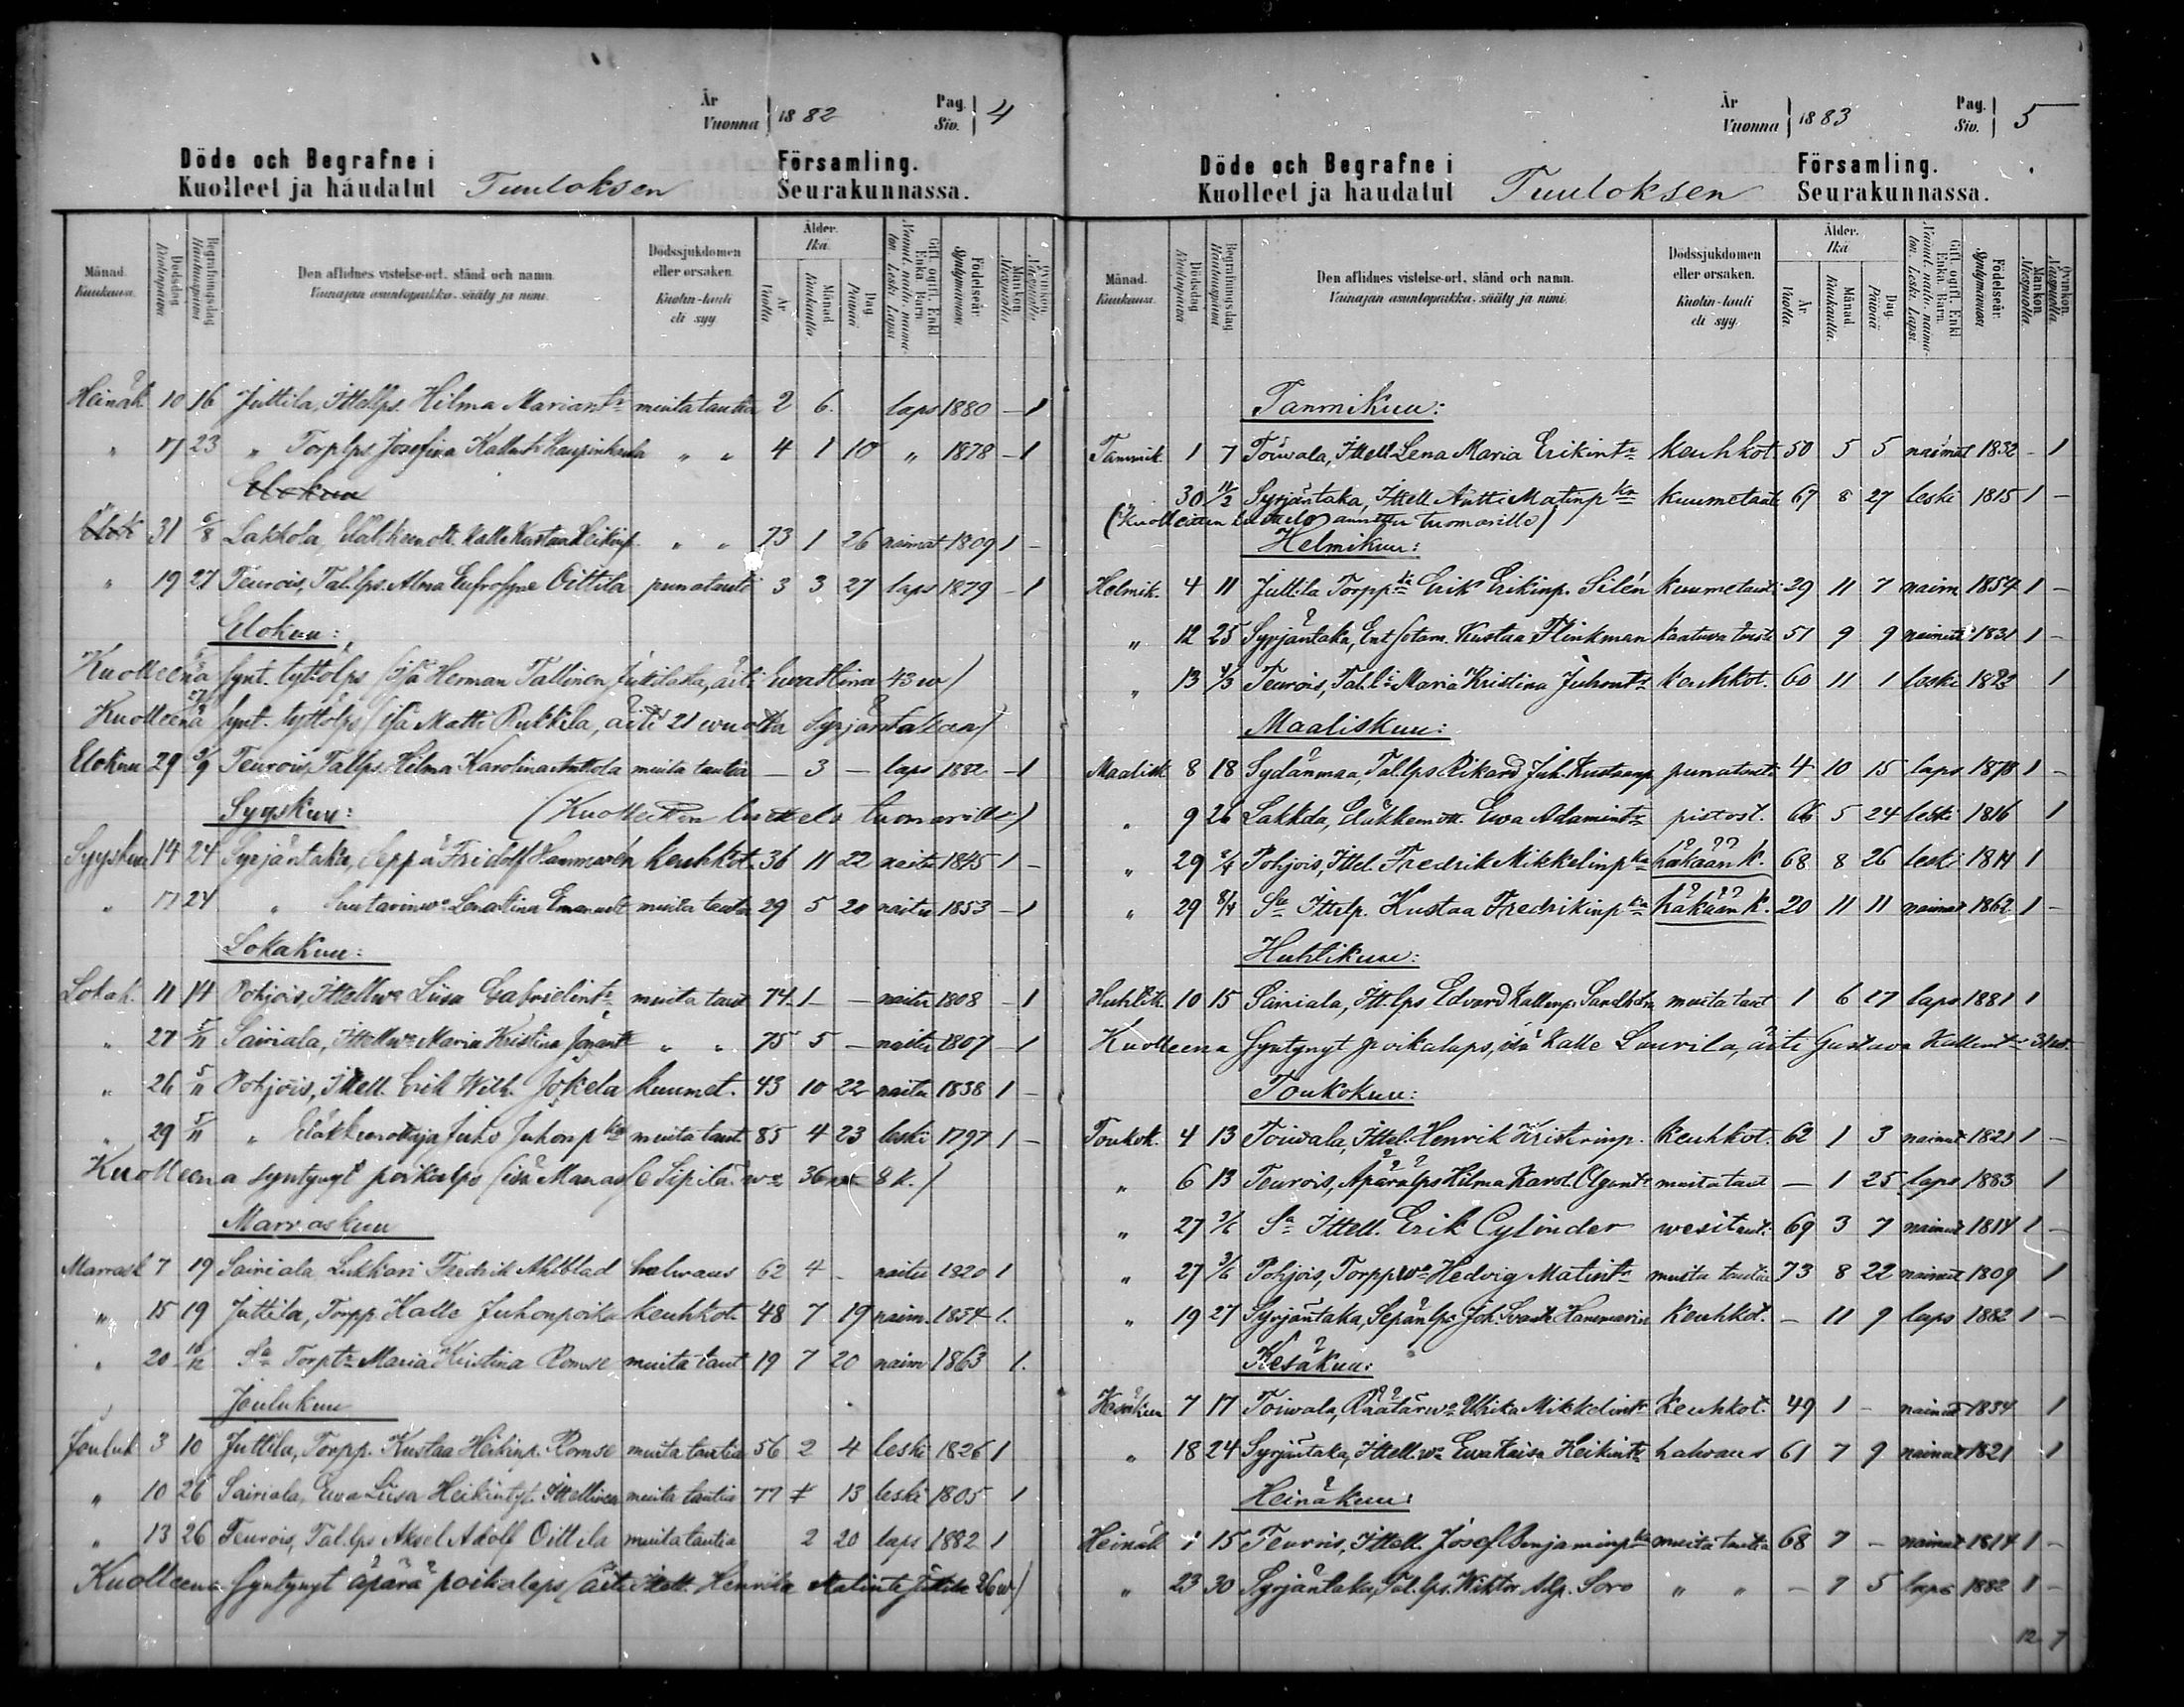 År Vuonna 1882 Pag. Siv. 4
Döde och Begrafne i Församling.
Kuolleet ja haudatut Tuuloksen Seurakunnassa.
Månad. Kuukausi. Dödsdag Kuolinpäivä Begrafningsdag Hautauspäivä Den aflidnes vistelse-ort, stånd och namn. Vainajan asuntopaikka, sääty ja nimi. Dödssjukdomen eller orsaken. Kuolin-tauti eli syy. Ålder. Ikä. År Vuotta Månad Kuukautta Dag Päivää Gift, ogift, Enkl. Enka, Barn. Nainut, naitu, naimaton, Leski, Lapsi Födelseår Syntymävuosi Mankön Miespuolia Qvinkön Naispuolia
Heinäk. 10 16 Juttila, Ittellps. Hilma Mariantr muita tautia 2 6 laps 1880 – 1
" 17 23 " Torp lps Josefina Kallentr " " 4 1 10 " 1878 – 1
Elokuu
Elok 31 6/8 Lakkola, Eläkkeen ott. Kalle Kustaa Heikinp. " " 73 1 26 naimat 1809 1 –
" 19 27 Teurois, Tal.lps. Alma Eufrosyne Oittila punatauti 3 3 27 laps 1879 – 1
Elokuu:
Kuolleena synt. tyttölps (isä Herman Tallinen Juttilasta, äiti Ewa Stina 43 w)
Kuolleena synt. tyttölps (isä Matti Rukkila, äiti 21 wuotta Syrjäntakaa)
Elokuu 29 3/9 Teurois, Tallps. Hilma Karolina Anttola muita tautia – 3 – laps 1882 – 1
Syyskuu: (Kuolleitten luettelo tuomarille)
Syyskuu 14 24 Syrjäntaka, Seppä Fridolf Hammarén keuhkot. 36 11 22 naitu 1845 1 –
" 17 24 " Suutarinwo Lena Stina Emanuelt muita tautia 29 5 20 naitu 1853 – 1
Lokakuu:
Lokak. 11 14 Pohjois, Ittellwo Liisa Gabrielintr muita taut 74 1 – naitu 1808 – 1
" 27 5/11 Sairiala, Ittellwo Maria Kristina " " 75 5 – naitu 1807 – 1
" 26 5/11 Pohjois, Ittell. Erik Wilh. Jokela kuumet. 43 10 22 naitu 1838 1 –
" 29 5/11 " Eläkkeenottaja Juho Juhonp ka muita taut. 85 4 23 leski 1797 1 –
Kuolleena syntynyt poikalps (isä Manasse Sipilä wo 36 8 k.)
Marraskuu
Marrask 7 19 Sairiala Lukkari Fredrik Ahlblad halwaus 62 4 – naitu 1820 1
" 15 19 Juttila, Torpp. Kalle Juhonpoika keuhkot. 48 7 19 naim. 1834 1.
" 20 10/12 Sa Torptr Maria Kristina Romse muita taut 19 7 20 naim 1863 1.
Joulukuu
Jouluk 3 10 Juttila, Torpp. Kustaa Heikinp. Romse muita tautia 56 2 4 leski 1826 1
" 10 26 Sairiala, Ewa Liisa Heikintyt. Ittellinen muita tautia 77 13 leski 1805 1
" 13 26 Teurois, Tal.lps Aksel Adolf Oittila muita tautia 2 20 laps 1882 1
Kuolleena syntynyt äpärä poikalaps (äiti Ittell. Henrika Matintr Juttila 26 w)
År Vuonna 1883 Pag. Siv. 5
Döde och Begrafne i Församling.
Kuolleet ja haudatut Tuuloksen Seurakunnassa.
Månad. Kuukausi. Dödsdag Kuolinpäivä Begrafningsdag Hautauspäivä Den aflidnes vistelse-ort, stånd och namn. Vainajan asuntopaikka, sääty ja nimi. Dödssjukdomen eller orsaken. Kuolin-tauti eli syy. Ålder. Ikä. År Vuotta. Månad Kuukautta. Dag Päivää Gift, ogift, Enkl. Enka, Barn. Nainut, naitu, naimaton, Leski, Lapsi. Födelseår. Syntymävuosi Mankön Miespuolia. Qvinkön Naispuolia.
Tammikuu:
Tammik. 1 7 Toiwala, Ittell. Lena Maria Erikintr keuhkot 50 5 5 naimat 1832 – 1
30 11/2 Syrjäntaka, Ittell Antti Matinp ka kuumetauti 67 8 27 leski 1815 1 –
(Kuolleitten luettelo annettu tuomarille)
Helmikuu:
Helmik. 4 11 Juttila Torpp ka Erik Erikinp. Silén kuumetauti 29 11 7 naim 1854 1 –
" 12 25 Syrjäntaka, Ent. sotam. Kustaa Flinkman kaatuwa taut. 51 9 9 naimat 1831 1 –
" 13 4/3 Teurois, Tal. Maria Kristina Juhontr keuhkot. 60 11 1 leski 1822 1
Maaliskuu:
Maalisk 8 18 Sydänmaa, Tal.lps Rikard Juh. Kustaanp punataut. 4 10 15 laps 1878 1 –
" 9 26 Lakkola, Eläkkeen ott. Ewa Adamintr pistost. 66 5 24 leski 1816 1
" 29 8/4 Pohjois, Ittel. Fredrik Mikkelinp ka häkään k. 68 8 26 leski 1814 1
" 29 8/4 Sa Ittelp. Kustaa Fredrikinp ka häkään k. 20 11 11 naimat 1862 1 –
Huhtikuu:
Huhtik. 10 15 Sairiala, Itt.lps Edvard Kallenp. Sandholm muita taut 1 6 17 laps 1881 1
Kuolleena syntynyt poikalaps, isä Kalle Laurila, äiti Gustava Kallentr
Toukokuu:
Toukok. 4 13 Toiwala, Ittel. Henrik Kristerinp. keuhkot. 62 1 3 naimat 1821 1 –
" 6 13 Teurois, Äpärälps Hilma Karol. muita taut – 1 25 laps 1883 1
" 27 3/6 Sa Ittell. Erik Cylinder wesitaut. 69 3 7 naimat 1814 1 –
" 27 3/6 Pohjois, Torppwo Hedvig Matintr muita tautia 73 8 22 naimat 1809 1
" 19 27 Syrjäntaka, Sepänlps Joh. Svante Hammarin keuhkot. – 11 9 laps 1882 1 –
Kesäkuu:
Kesäkuu 7 17 Toiwala, Räätärwo Ulrika Mikkelintr keuhkot. 49 1 – naimat 1834 1
" 18 24 Syrjäntaka, Ittell.wo Ewa Kaisa Heikintr halwaus 61 7 9 naimat 1821 1
Heinäkuu:
Heinäk 1 15 Teurois, Ittell. Josef Benjaminp ka muita tautia 68 7 – naimat 1814 1 –
" 23 30 Syrjäntaka, Tal.lps. Wiktor Alp. Soro " " – 7 5 laps 1882 1 –
12 7